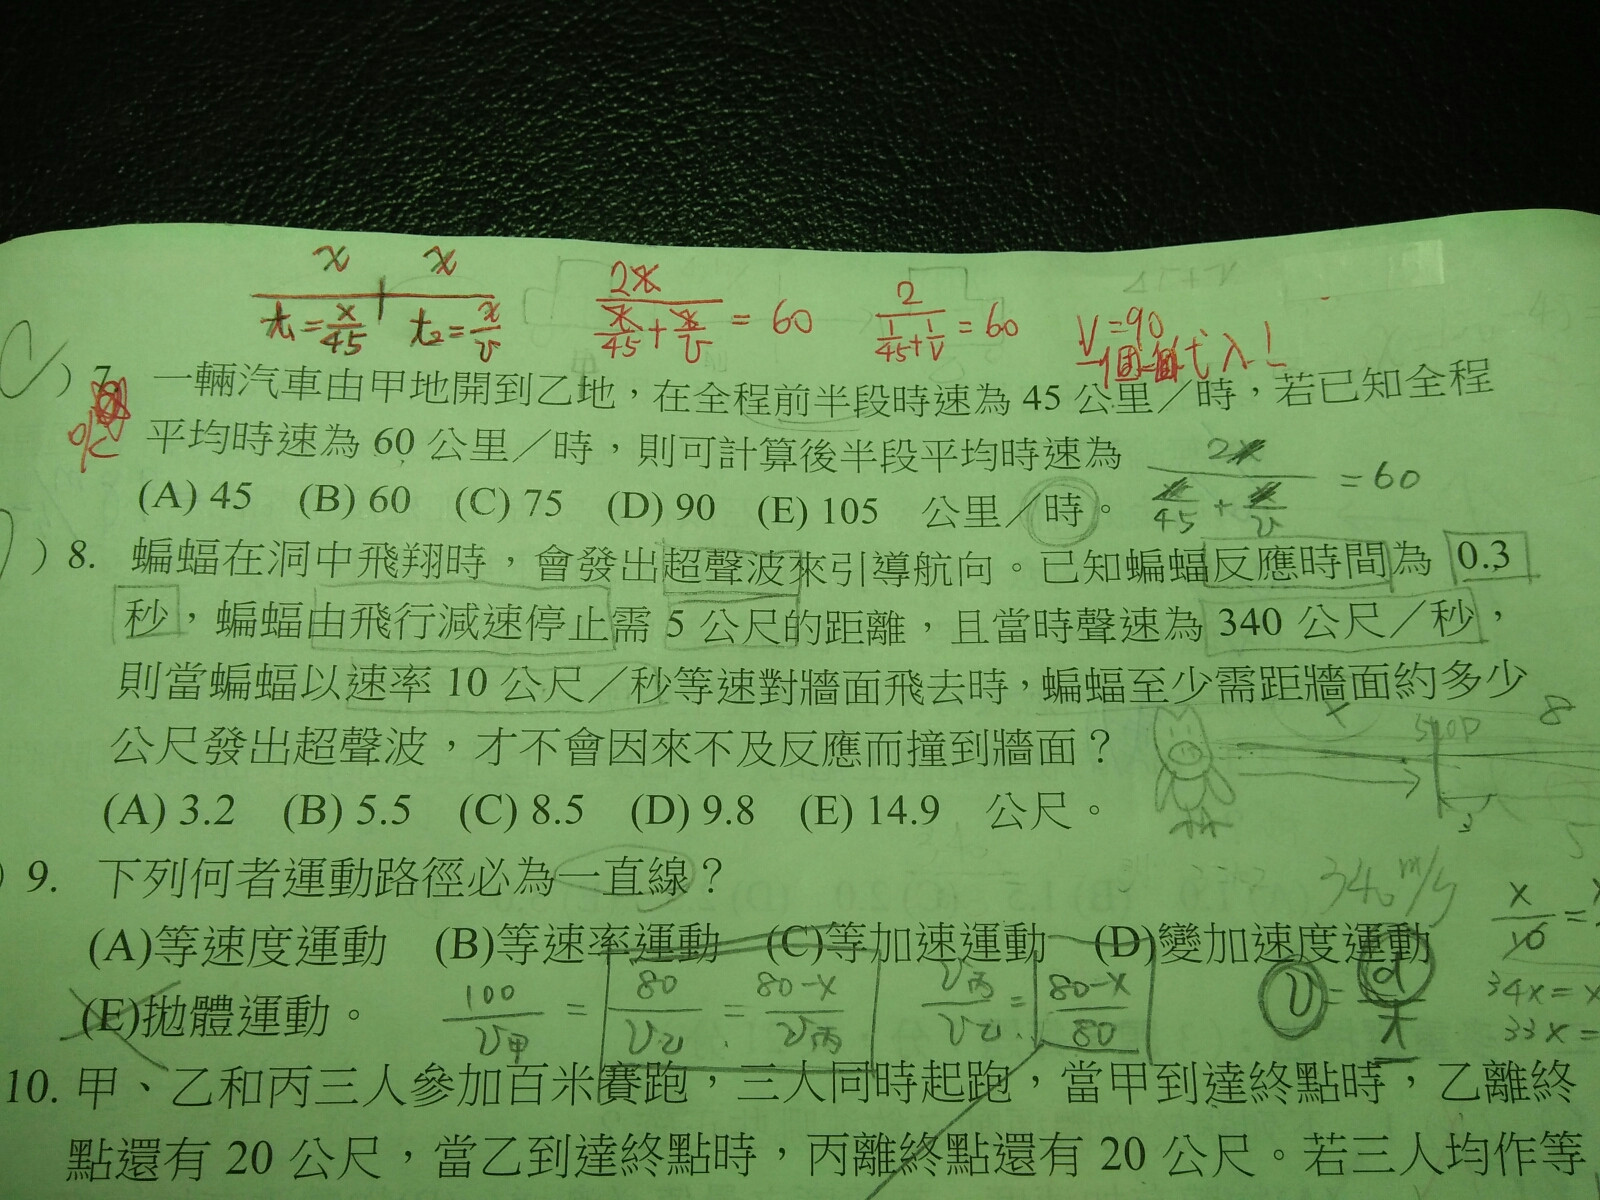 x x
t₁=x/45 t₂=x/v
2x/(x/45+x/v) = 60
2/(1/45+1/v) = 60
V=90
代入!
)7. 一輛汽車由甲地開到乙地，在全程前半段時速為 45 公里／時，若已知全程
平均時速為 60 公里／時，則可計算後半段平均時速為
2x/(x/45+x/v) =60
(A) 45 (B) 60 (C) 75 (D) 90 (E) 105 公里／時。
) 8. 蝙蝠在洞中飛翔時，會發出超聲波來引導航向。已知蝙蝠反應時間為 0.3
秒，蝙蝠由飛行減速停止需 5 公尺的距離，且當時聲速為 340 公尺／秒，
則當蝙蝠以速率 10 公尺／秒等速對牆面飛去時，蝙蝠至少需距牆面約多少
公尺發出超聲波，才不會因來不及反應而撞到牆面？
x stop 8
3 5
(A) 3.2 (B) 5.5 (C) 8.5 (D) 9.8 (E) 14.9 公尺。
) 9. 下列何者運動路徑必為一直線？
340 m/s
x/10 =
(A)等速度運動 (B)等速率運動 (C)等加速運動 (D)變加速度運動
(E)拋體運動。
100/v甲 = 80/v乙 = 80-x/v丙
v丙/v乙 = 80-x/80
v = d/t
34x=x
33x=
10. 甲、乙和丙三人參加百米賽跑，三人同時起跑，當甲到達終點時，乙離終
點還有 20 公尺，當乙到達終點時，丙離終點還有 20 公尺。若三人均作等